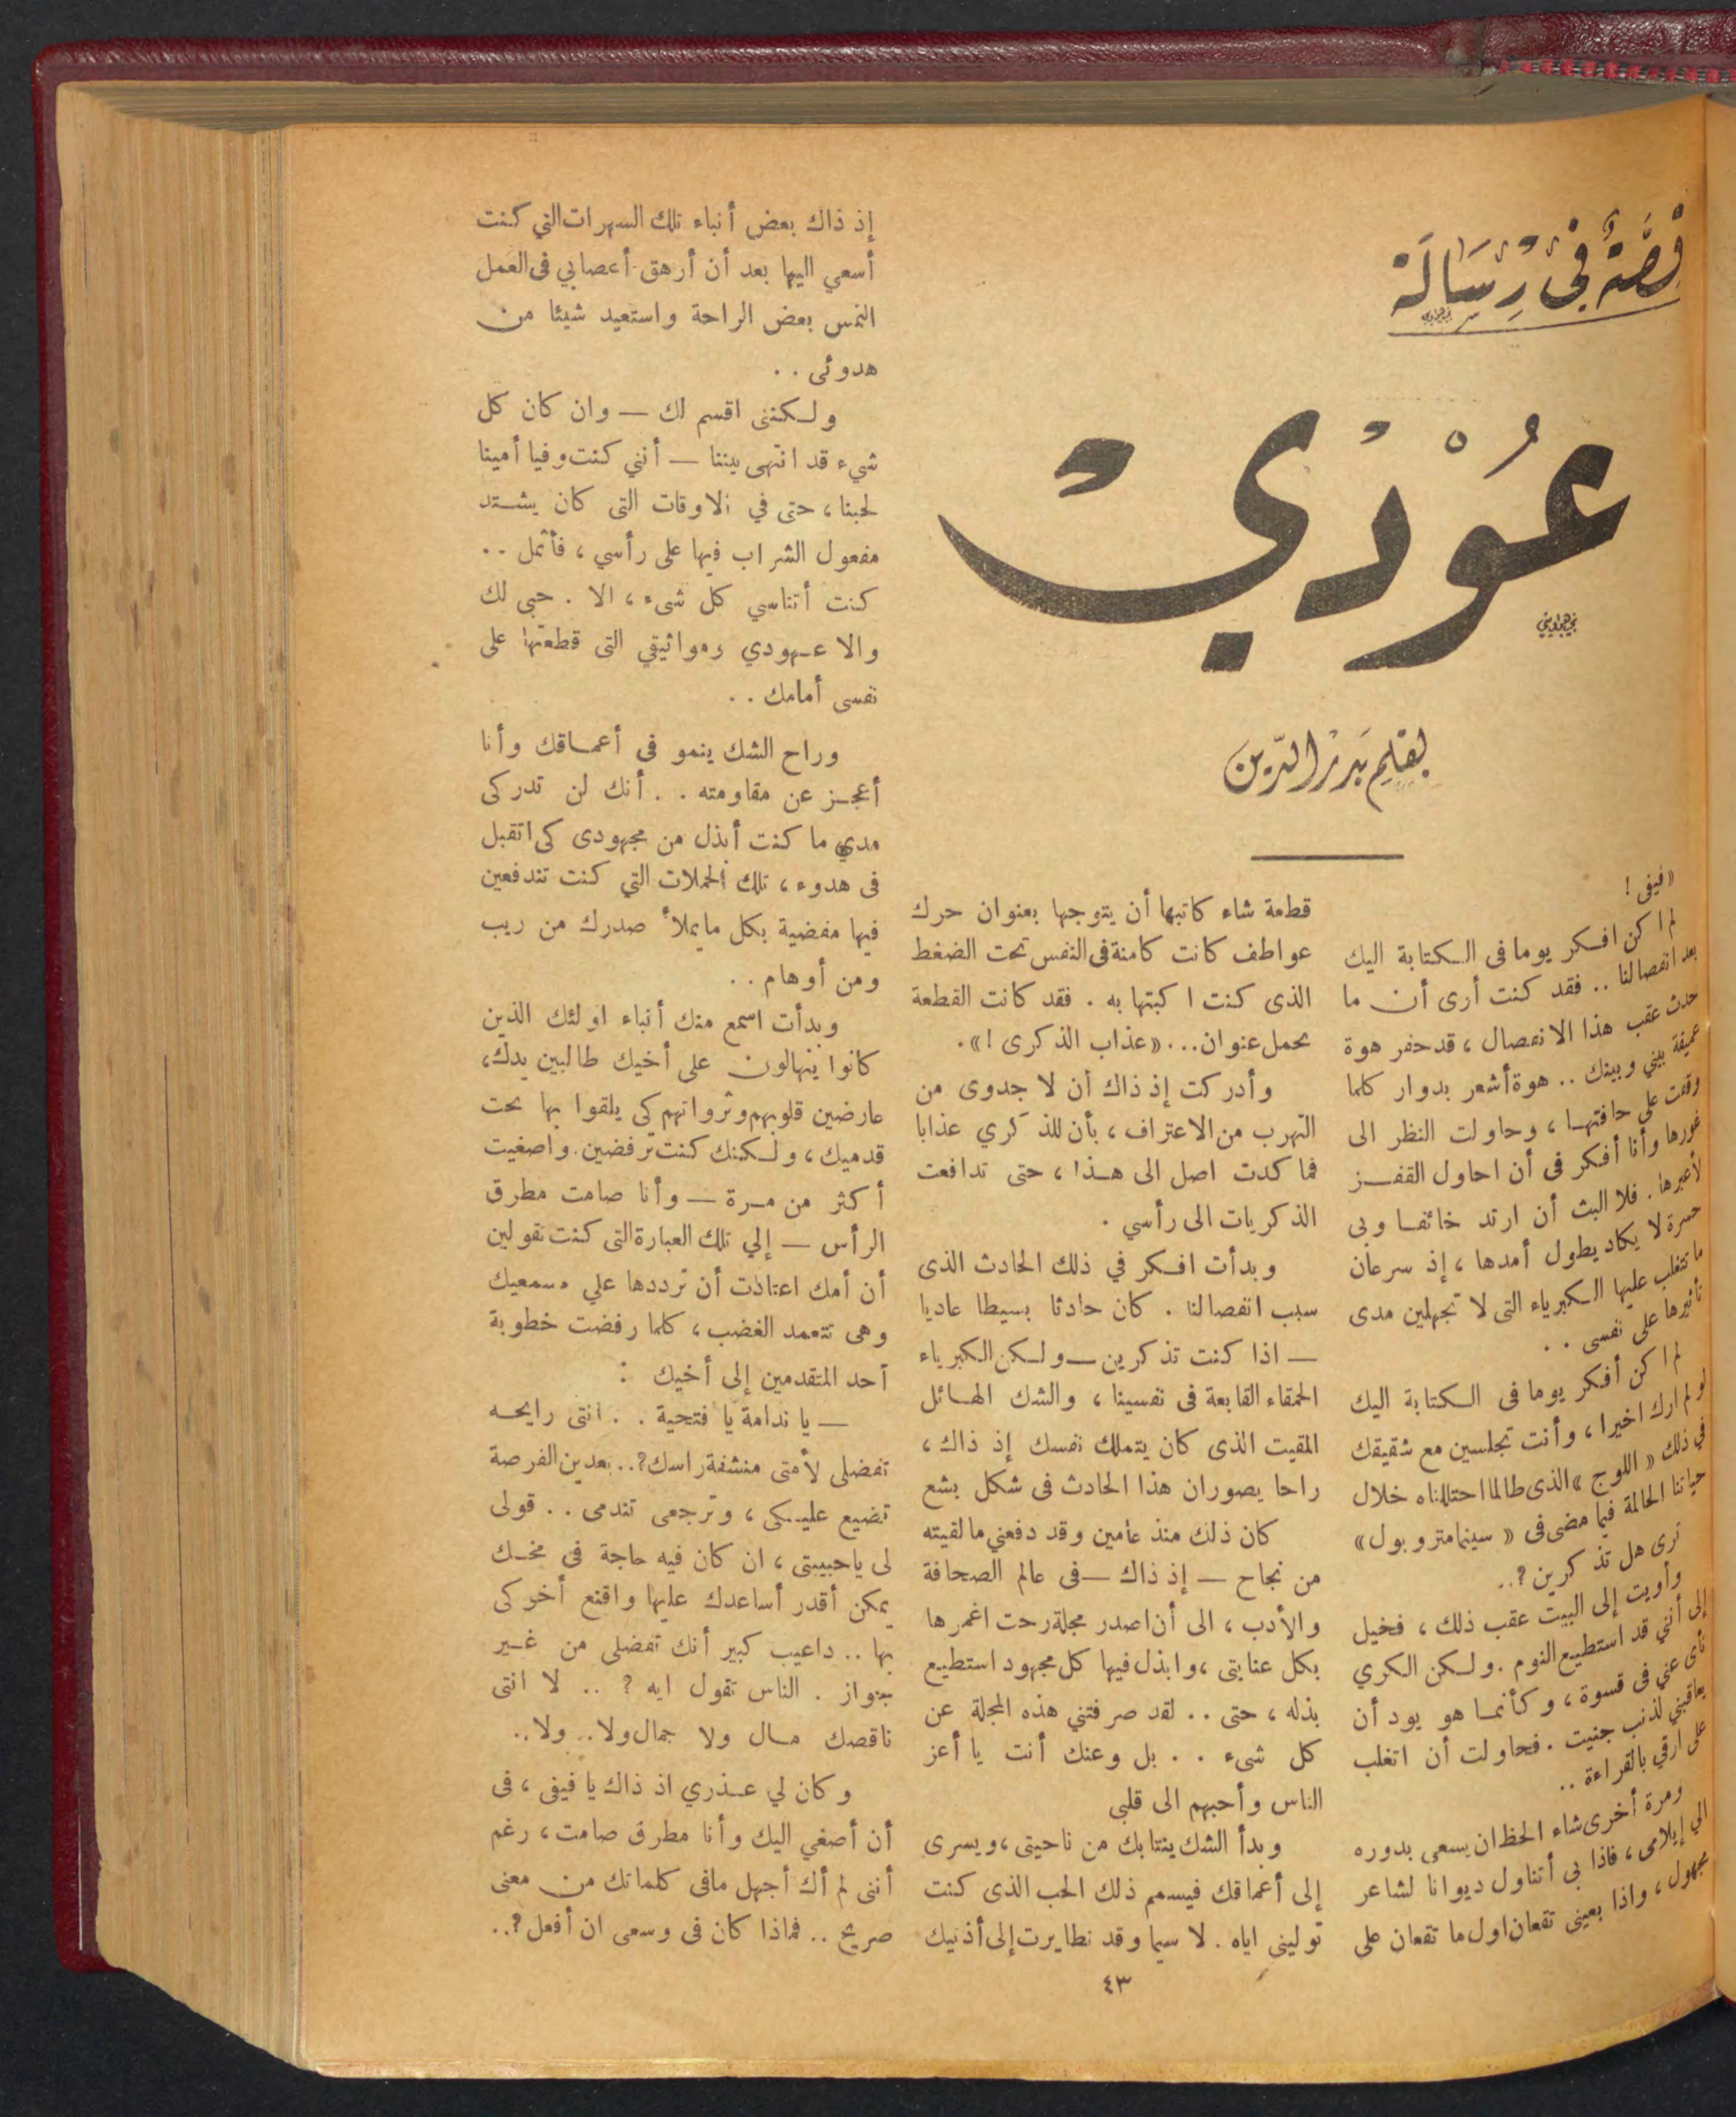 قصة في رسالة
عودي
بقلم بدر الدين
« فيفى !
لم ا كن افكر يوما فى الكتابة اليك
بعد انفصالنا .. فقد كنت أرى أن ما
حدث عقب هذا الانفصال ، قد حفر هوة
عميقة بيني وبينك .. هوة أشعر بدوار كلما
وقفت على حافتها ، وحاولت النظر الى
غورها وأنا أفكر فى أن احاول القفز
لأعبرها . فلا البث أن ارتد خائفا وبى
حسرة لا يكاد يطول أمدها ، إذ سرعان
ما تتغلب عليها الكبرياء التى لا تجهلين مدى
تأثيرها على نفسى . .
لم ا كن أفكر يوما فى الكتابة اليك
لو لم ارك اخيرا ، وأنت تجلسين مع شقيقك
في ذلك « اللوج » الذى طالما احتللناه خلال
حياتنا الحالمة فيما مضى فى « سينما متروبول »
ترى هل تذ كرين ؟..
وأويت إلى البيت عقب ذلك ، فخيل
إلى أنني قد استطيع النوم . ولكن الكري
نأى عني فى قسوة ، وكأنما هو يود أن
يعاقبني لذنب جنيت . فحاولت أن اتغلب
على ارقي بالقراءة ..
ومرة أخرى شاء الحظ ان يسعى بدوره
الي إيلامى ، فاذا بى أتناول ديوانا لشاعر
مجهول ، واذا بعينى تقعان اول ما تقعان على
قطعة شاء كاتبها أن يتوجها بعنوان حرك
عواطف كانت كامنة فى النفس تحت الضغط
الذى كنت ا كبتها به . فقد كانت القطعة
تحمل عنوان... «عذاب الذكرى !».
وأدركت إذ ذاك أن لا جدوى من
التهرب من الاعتراف ، بأن للذ كري عذابا
فما كدت اصل الى هذا ، حتى تدافعت
الذكريات الى رأسي .
وبدأت افكر في ذلك الحادث الذى
سبب انفصالنا . كان حادثا بسيطا عاديا
— اذا كنت تذكرين — ولكن الكبرياء
الحمقاء القابعة فى نفسينا ، والشك الهائل
المقيت الذى كان يتملك نفسك إذ ذاك ،
راحا يصوران هذا الحادث فى شكل بشع
كان ذلك منذ عامين وقد دفعني ما لقيته
من نجاح — إذ ذاك — فى عالم الصحافة
والأدب ، الى أن اصدر مجلة رحت اغمرها
بكل عنايتى ، وابذل فيها كل مجهود استطيع
بذله ، حتى .. لقد صرفتني هذه المجلة عن
كل شىء . . بل وعنك أنت يا أعز
الناس وأحبهم الى قلبي
وبدأ الشك ينتابك من ناحيتى ، ويسرى
إلى أعماقك فيسمم ذلك الحب الذى كنت
توليني اياه . لا سيما وقد تطايرت إلى أذنيك
إذ ذاك بعض أنباء تلك السهرات التي كنت
أسعي اليها بعد أن أرهق أعصابي فى العمل
التمس بعض الراحة واستعيد شيئا من
هدوئى . .
ولكننى اقسم لك — وان كان كل
شيء قد انتهى بيننا — أنني كنت وفيا أمينا
لحبنا ، حتى في الاوقات التى كان يشتد
مفعول الشراب فيها على رأسي ، فأثمل ..
كنت أتناسي كل شىء ، الا . حبى لك
والا عهودي ومواثيقي التى قطعتها على
نفسى أمامك . .
وراح الشك ينمو فى أعماقك وأنا
أعجز عن مقاومته . . أنك لن تدركى
مدي ما كنت أبذل من مجهودى كى اتقبل
فى هدوء ، تلك الحملات التي كنت تندفعين
فيها مفضية بكل مايملأ صدرك من ريب
ومن أوهام . .
وبدأت اسمع منك أنباء اولئك الذين
كانوا ينهالون على أخيك طالبين يدك ،
عارضين قلوبهم وثرواتهم كى يلقوا بها تحت
قدميك ، ولكنك كنت ترفضين . واصغيت
أكثر من مرة — وأنا صامت مطرق
الرأس — إلي تلك العبارة التى كنت تقولين
أن أمك اعتادت أن ترددها علي مسمعيك
وهى تتعمد الغضب ، كلما رفضت خطوبة
أحد المتقدمين إلى أخيك :
— يا ندامة يا فتحية . . انتى رايحه
تفضلى لأمتى منشفة راسك ؟.. بعدين الفرصة
تضيع عليكى ، وترجعى تندمى . . قولى
لى ياحبيبتى ، ان كان فيه حاجة فى مخك
يمكن أقدر أساعدك عليها واقنع أخوكى
بها .. داعيب كبير أنك تفضلى من غير
جواز . الناس تقول ايه ? .. لا انتى
ناقصك مال ولا جمال ولا .. ولا..
وكان لي عذري اذ ذاك يا فيفى ، فى
أن أصغي اليك وأنا مطرق صامت ، رغم
أننى لم أك أجهل مافى كلماتك من معنى
صريح .. فماذا كان فى وسعى ان أفعل ؟..
٤٣